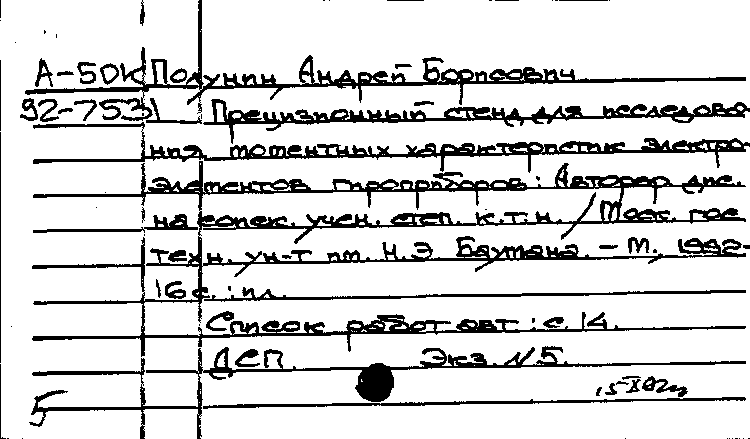 А-50К Полунин, Андрей Борисович
92-7531 Прецизионный стенд для исследова-
ния моментных характеристик электро-
элементов гироприборов: Автореф. дис.
на соиск. учен. степ. к.т.н. / Моск. гос.
техн. ун-т им. Н.Э. Баумана. - М., 1992-
16 с. : ил.
Список работ авт.: с. 14.
ДСП. Экз. N 5.
5